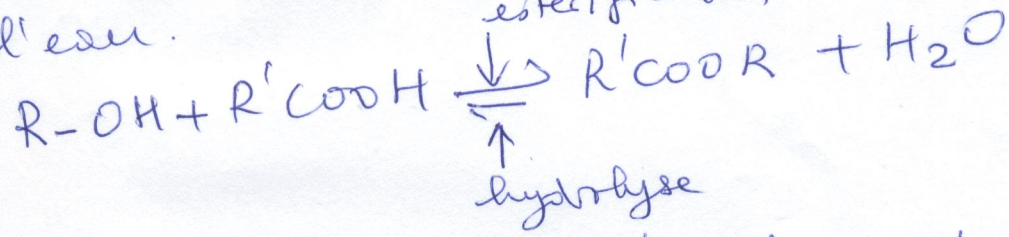 l'eau.
R-OH + R'COOH ⇌ R'COOR + H₂O
hydrolyse